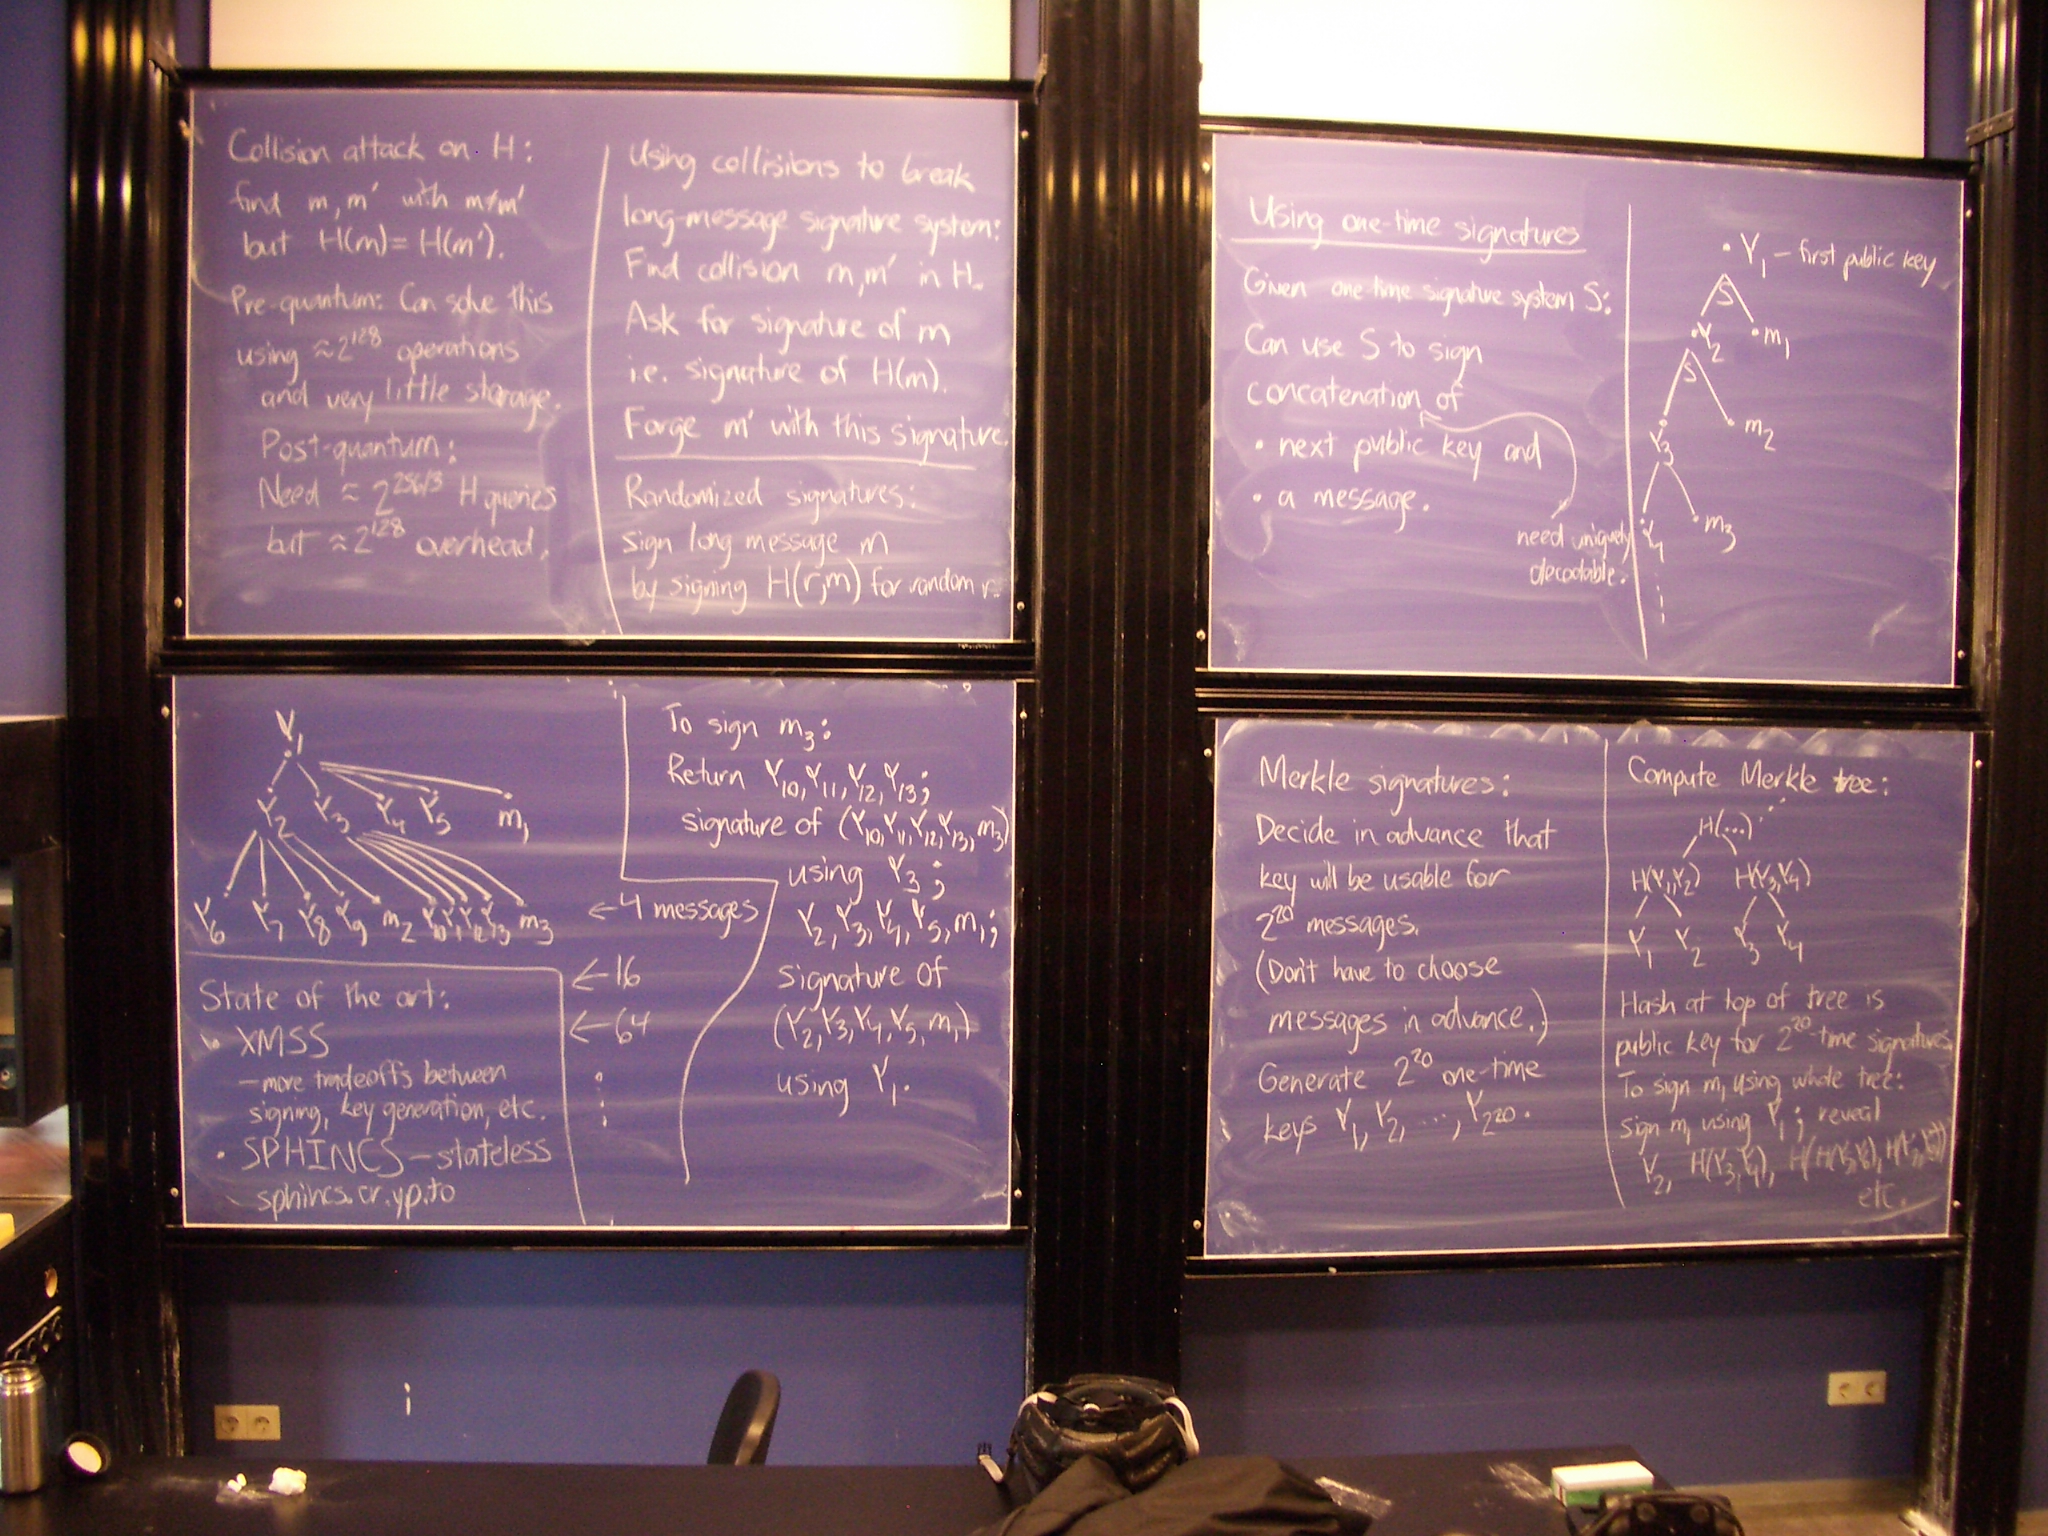 Collision attack on H:
find m, m' with m≠m'
but H(m) = H(m').
Pre-quantum: Can solve this
using ≈2^128 operations
and very little storage.
Post-quantum:
Need ≈ 2^256/3 H queries
but ≈2^128 overhead.
Using collisions to break
long-message signature system:
Find collision m,m' in H.
Ask for signature of m
i.e. signature of H(m).
Forge m' with this signature.
Randomized signatures:
sign long message m
by signing H(r,m) for random r.
Using one-time signatures
Given one-time signature system S:
Can use S to sign
concatenation of
• next public key and
• a message.
need uniquely
decodable.
Y_1 – first public key
S
Y_2 m_1
S
Y_3 m_2
Y_4 m_3
Y_1
Y_2 Y_3 Y_4 Y_5 m_1
Y_6 Y_7 Y_8 Y_9 m_2 Y_10 Y_11 Y_12 Y_13 m_3
← 4 messages
← 16
← 64
State of the art:
• XMSS
– more tradeoffs between
signing, key generation, etc.
• SPHINCS – stateless
– sphincs.cr.yp.to
To sign m_3:
Return Y_10, Y_11, Y_12, Y_13;
signature of (Y_10, Y_11, Y_12, Y_13, m_3)
using Y_3;
Y_2, Y_3, Y_4, Y_5, m_1;
signature of
(Y_2, Y_3, Y_4, Y_5, m_1)
using Y_1.
Merkle signatures:
Decide in advance that
key will be usable for
2^20 messages.
(Don't have to choose
messages in advance.)
Generate 2^20 one-time
keys Y_1, Y_2, ..., Y_2^20.
Compute Merkle tree:
H(...)
H(Y_1,Y_2) H(Y_3,Y_4)
Y_1 Y_2 Y_3 Y_4
Hash at top of tree is
public key for 2^20-time signatures
To sign m_1 using whole tree:
sign m_1 using Y_1; reveal
Y_2, H(Y_3,Y_4), H(H(Y_5,Y_6),H(Y_7,Y_8))
etc.